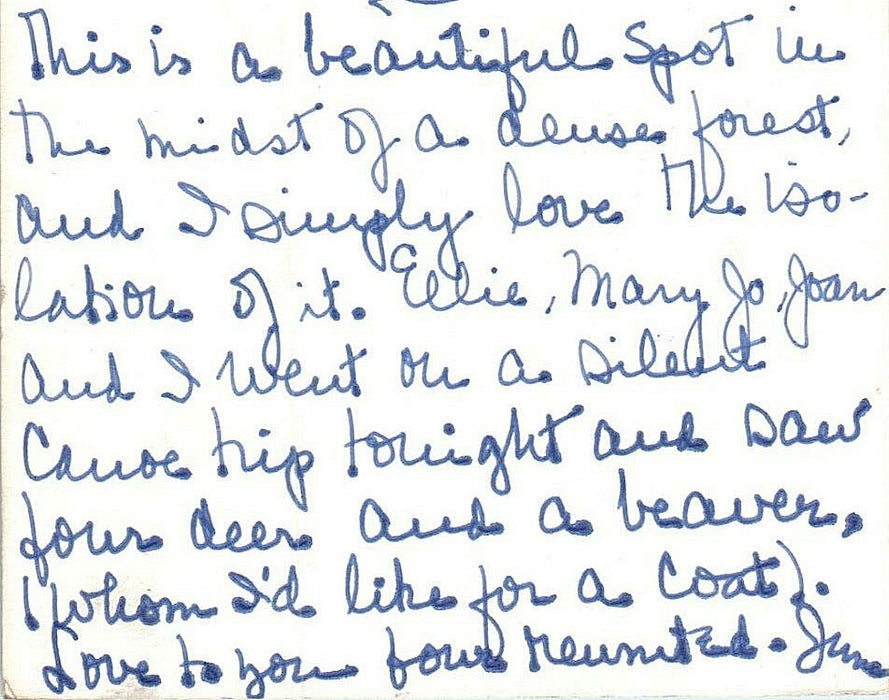 This is a beautiful spot in
the midst of a dense forest,
and I simply love the iso-
lation of it. Ellie, Mary Jo, Joan
and I went on a silent
canoe trip tonight and saw
four deer and a beaver,
(whom I'd like for a coat).
Love to you four reunited. June